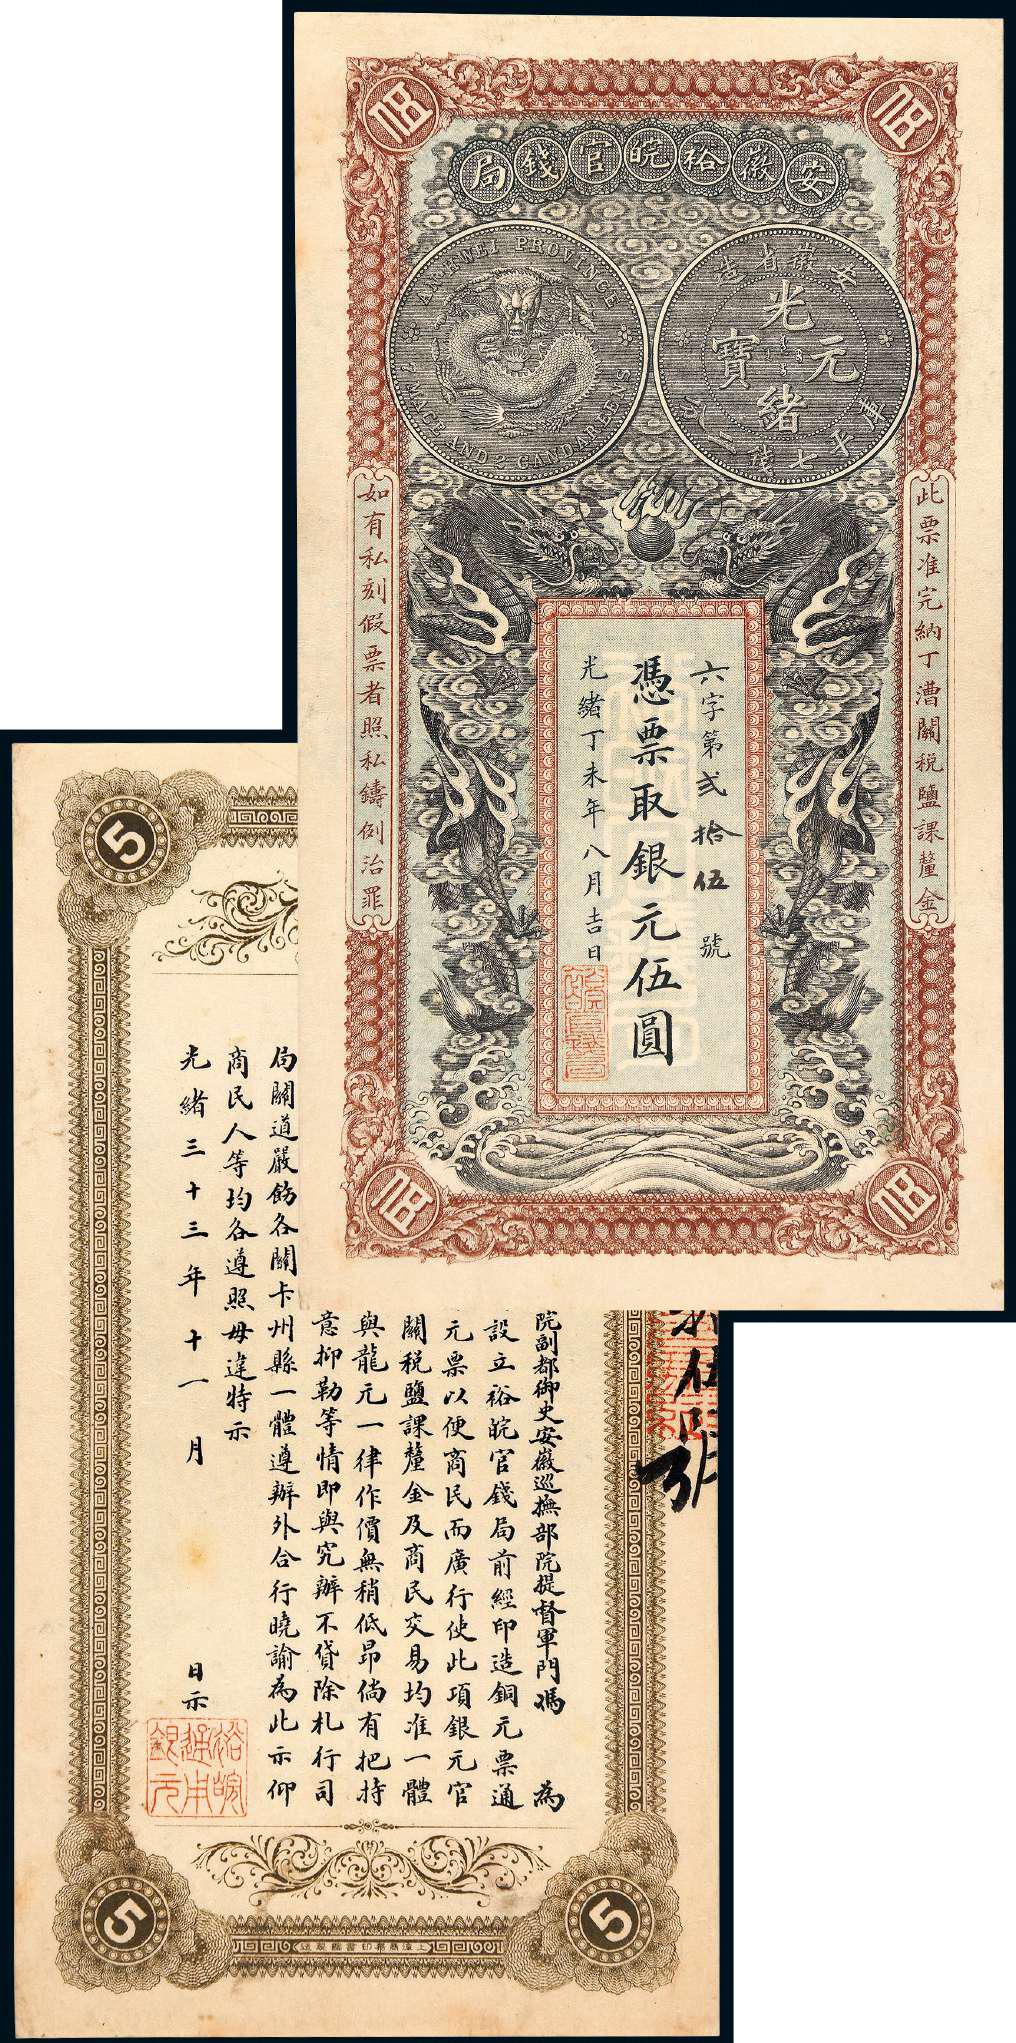 安徽裕皖官錢局
AN-HWEI PROVINCE
7 MACE AND 2 CANDAREENS
安徽省造
光緒元寶
庫平七錢二分
此票准完納丁漕關稅鹽課釐金
六字第弍拾伍號
憑票取銀元伍圓
光緒丁未年八月吉日
如有私刻假票者照私鑄例治罪
伍
伍
伍
伍
5
院副都御史安徽巡撫部院提督軍門馮 為
設立裕皖官錢局前經印造銅元票通
元票以便商民而廣行使此項銀元官
關稅鹽課釐金及商民交易均准一體
與龍元一律作價無稍低昂倘有把持
意抑勒等情即與究辦不貸除札行司
局關道嚴飭各關卡州縣一體遵辦外合行曉諭為此示仰
商民人等均各遵照毋違特示
光緒三十三年十一月 日示
裕皖通用銀元
5
5
上海商務印書館製造
伍號